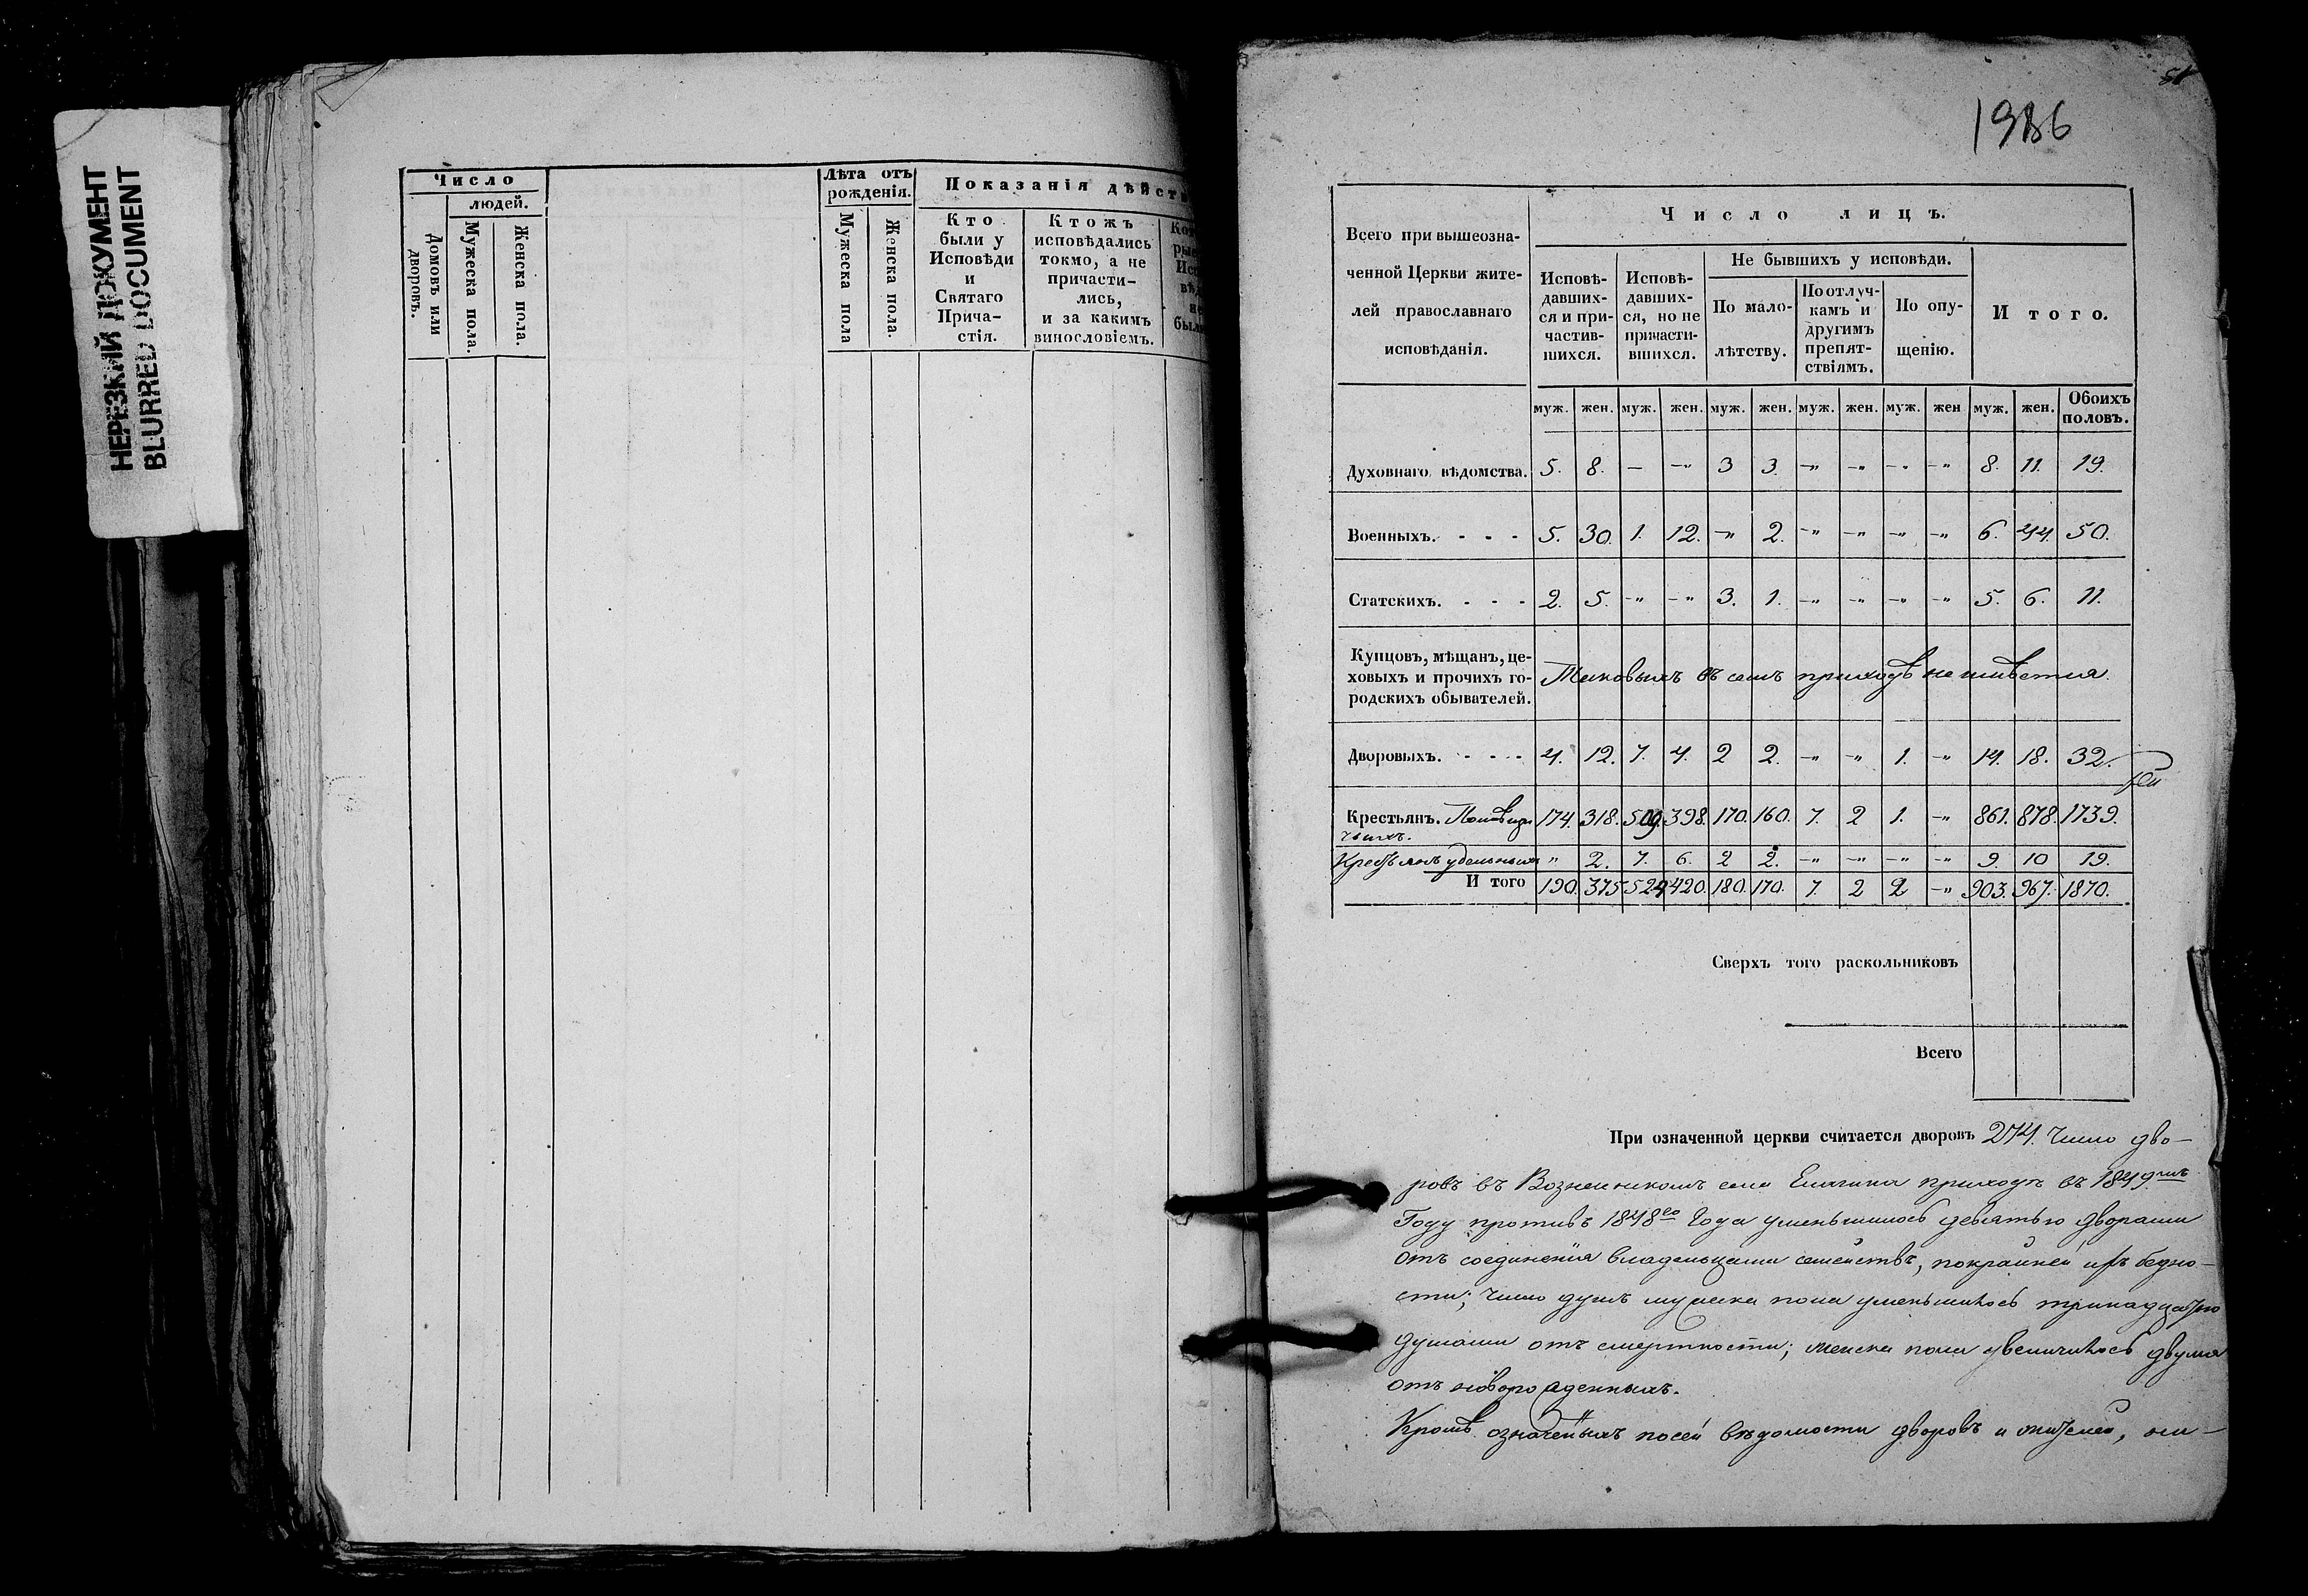 НЕРЕЗКИЙ ДОКУМЕНТ
BLURRED DOCUMENT
Число
людей.
Домовъ или дворовъ.
Мужеска пола.
Женска пола.
Лѣта отъ
рожденія.
Мужеска пола
Женска пола.
Показанія дѣйст
Кто
были у
Исповѣди
и
Святаго
Прича-
стія.
Ктожъ
исповѣдались
токмо, а не
причасти-
лись,
и за какимъ
винословіемъ.
51
1986
Всего при вышеозна-
ченной Церкви жите-
лей православнаго
исповѣданія.
Число лицъ.
Исповѣ-
давших-
ся и при-
частив-
шихся.
Исповѣ-
давших-
ся, но не
причасти-
вшихся.
Не бывшихъ у исповѣди.
По мало-
лѣтству.
По отлуч-
камъ и
другимъ
препят-
ствіямъ.
По опу-
щенію.
Итого.
муж. жен. муж. жен. муж. жен. муж. жен. муж. жен муж. жен. Обоихъ половъ.
Духовнаго вѣдомства. 5. 8. – –„ 3 3. –„ –„ –„ –„ 8. 11. 19.
Военныхъ. - - - 5. 30. 1. 12. –„ 2. –„ –„ –„ –„ 6. 44. 50.
Статскихъ. - - - 2. 5. –„ –„ 3. 1. –„ –„ –„ –„ 5. 6. 11.
Купцовъ, мѣщанъ, це-
ховыхъ и прочихъ го-
родскихъ обывателей.
Таковыхъ въ семъ приходѣ не имѣется.
Дворовыхъ. - - - 4. 12. 7. 4. 2 2. –„ –„ 1. –„ 14. 18. 32.
Крестьянъ. Помѣщи 174. 318. 509. 398. 170. 160. 7. 2 1. –„ 861. 878. 1739.
чьихъ.
Крестьянъ удельныхъ „ 2. 7. 6. 2 2. –„ –„ –„ –„ 9. 10 19.
И того 190. 375. 524 420. 180. 170. 7. 2 2 –„ 903. 967. 1870.
Сверхъ того раскольниковъ
Всего
При означенной церкви считается дворовъ 274. Число дво-
ровъ въ Вознесенскомъ села приходѣ въ 1849мъ
Году противъ 1848го Года уменьшилось девятью дворами
отъ соединенія владельцами семействъ, по крайней ихъ бедно-
сти; число душъ мужеска пола уменьшилось тринадцатью
душами отъ смертности; женска пола увеличилось двумя
отъ новорожденныхъ.
Кромѣ означенныхъ по сей вѣдомости дворовъ и жителей, ни-